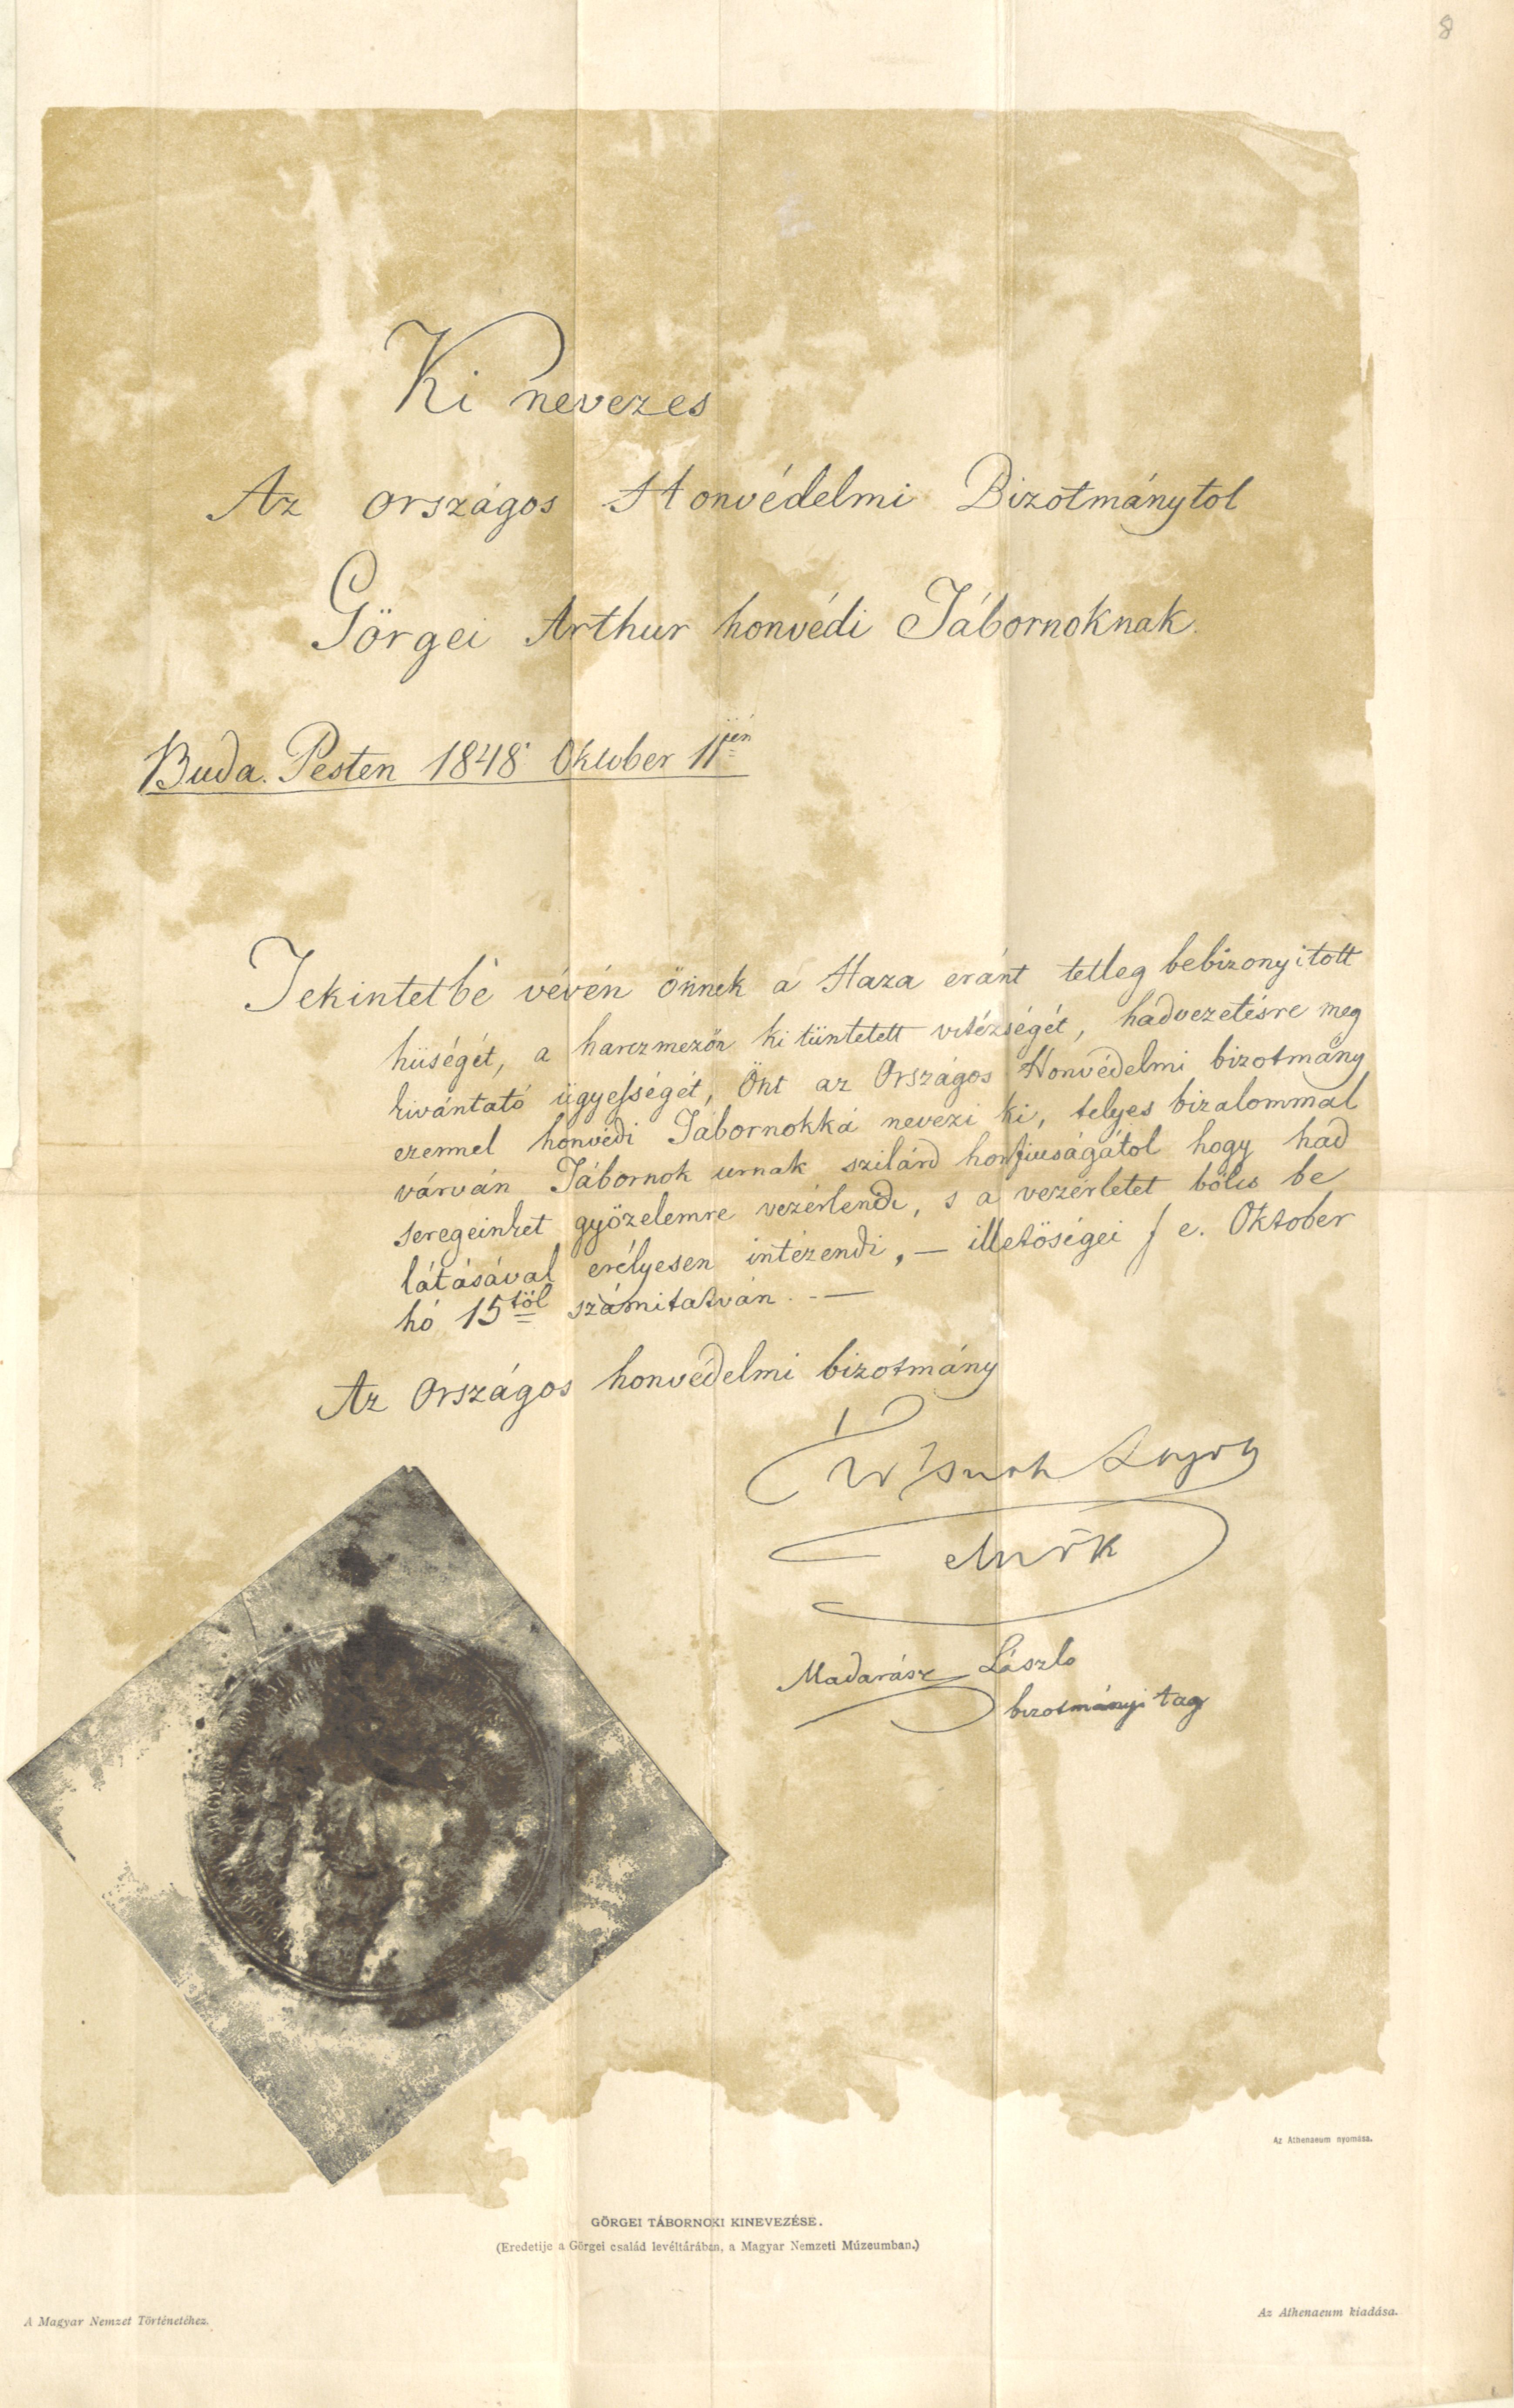 8
Ki nevezes
Az országos Honvédelmi Bizotmánytol
Görgei Arthur honvédi Tábornoknak.
Buda. Pesten 1848 Oktober 11jén
Tekintetbe vévén önnek a Haza eránt tetleg bebizonyitott
hüségét, a harczmezőn ki tüntetett vitézségét, hadvezetésre meg
kivántató ügyességét, Önt az Országos Honvédelmi bizotmány
ezennel honvédi Tábornokká nevezi ki, telyes bizalommal
várván Tábornok urnak szilárd honfiuságátol hogy had
seregeinket győzelemre vezérlendi, s a vezérletet bölcs be
látásával erélyesen intézendi, — illetőségei f e. Oktober
hó 15től számitatván. —
Az Országos honvédelmi bizotmány
Kossuth Lajos
elnök
Madarász László
bizotmányi tag
Az Athenaeum nyomása.
GÖRGEI TÁBORNOKI KINEVEZÉSE.
(Eredetije a Görgei család levéltárában, a Magyar Nemzeti Múzeumban.)
A Magyar Nemzet Történetéhez.
Az Athenaeum kiadása.